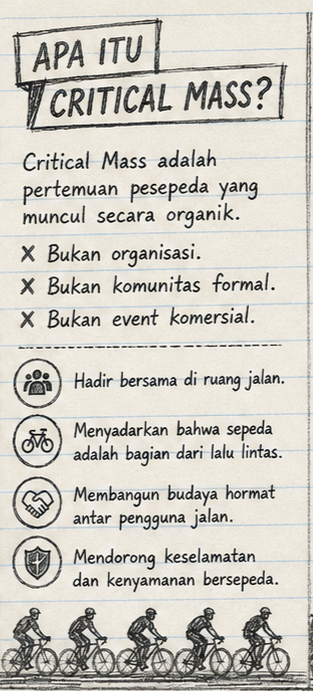 APA ITU
CRITICAL MASS?
Critical Mass adalah
pertemuan pesepeda yang
muncul secara organik.
X Bukan organisasi.
X Bukan komunitas formal.
X Bukan event komersial.
Hadir bersama di ruang jalan.
Menyadarkan bahwa sepeda
adalah bagian dari lalu lintas.
Membangun budaya hormat
antar pengguna jalan.
Mendorong keselamatan
dan kenyamanan bersepeda.